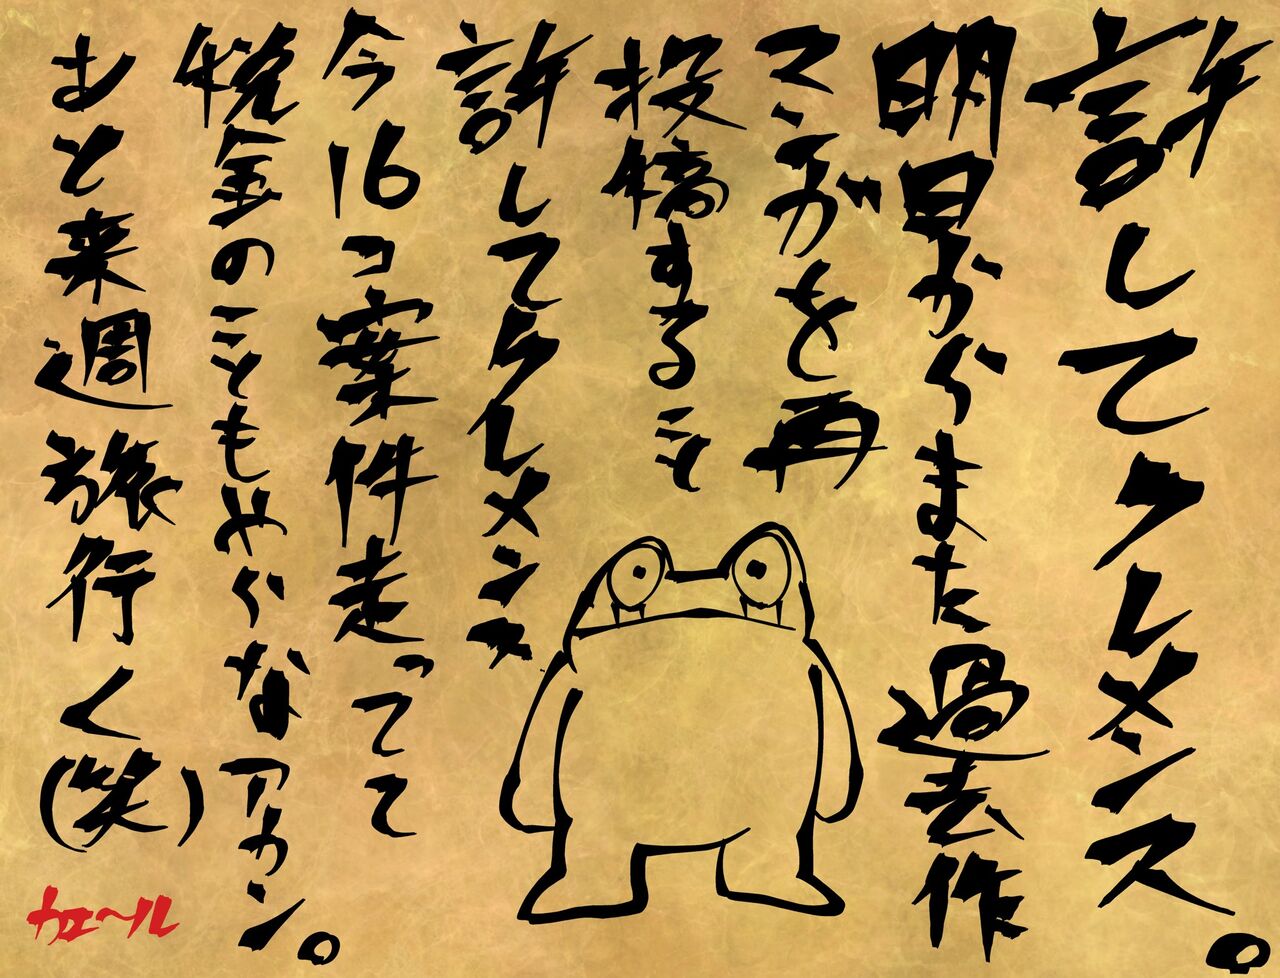 許してクレメンス。
明日からまた過去作
マンガを再
投稿すること
許してクレメンス
今16コ案件走ってて
税金のこともやらなアカン。
あと来週旅行く(笑)
カエ〜ル